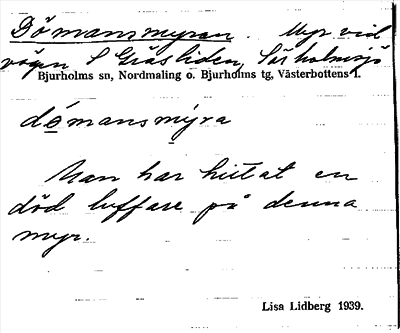 Dömansmyran. Myr vid
vägen S Gräsliden, Särholmsjö
Bjurholms sn, Nordmaling o. Bjurholms tg, Västerbottens l.
dömansmýra
Man har hittat en
död luffare på denna
myr.
Lisa Lidberg 1939.